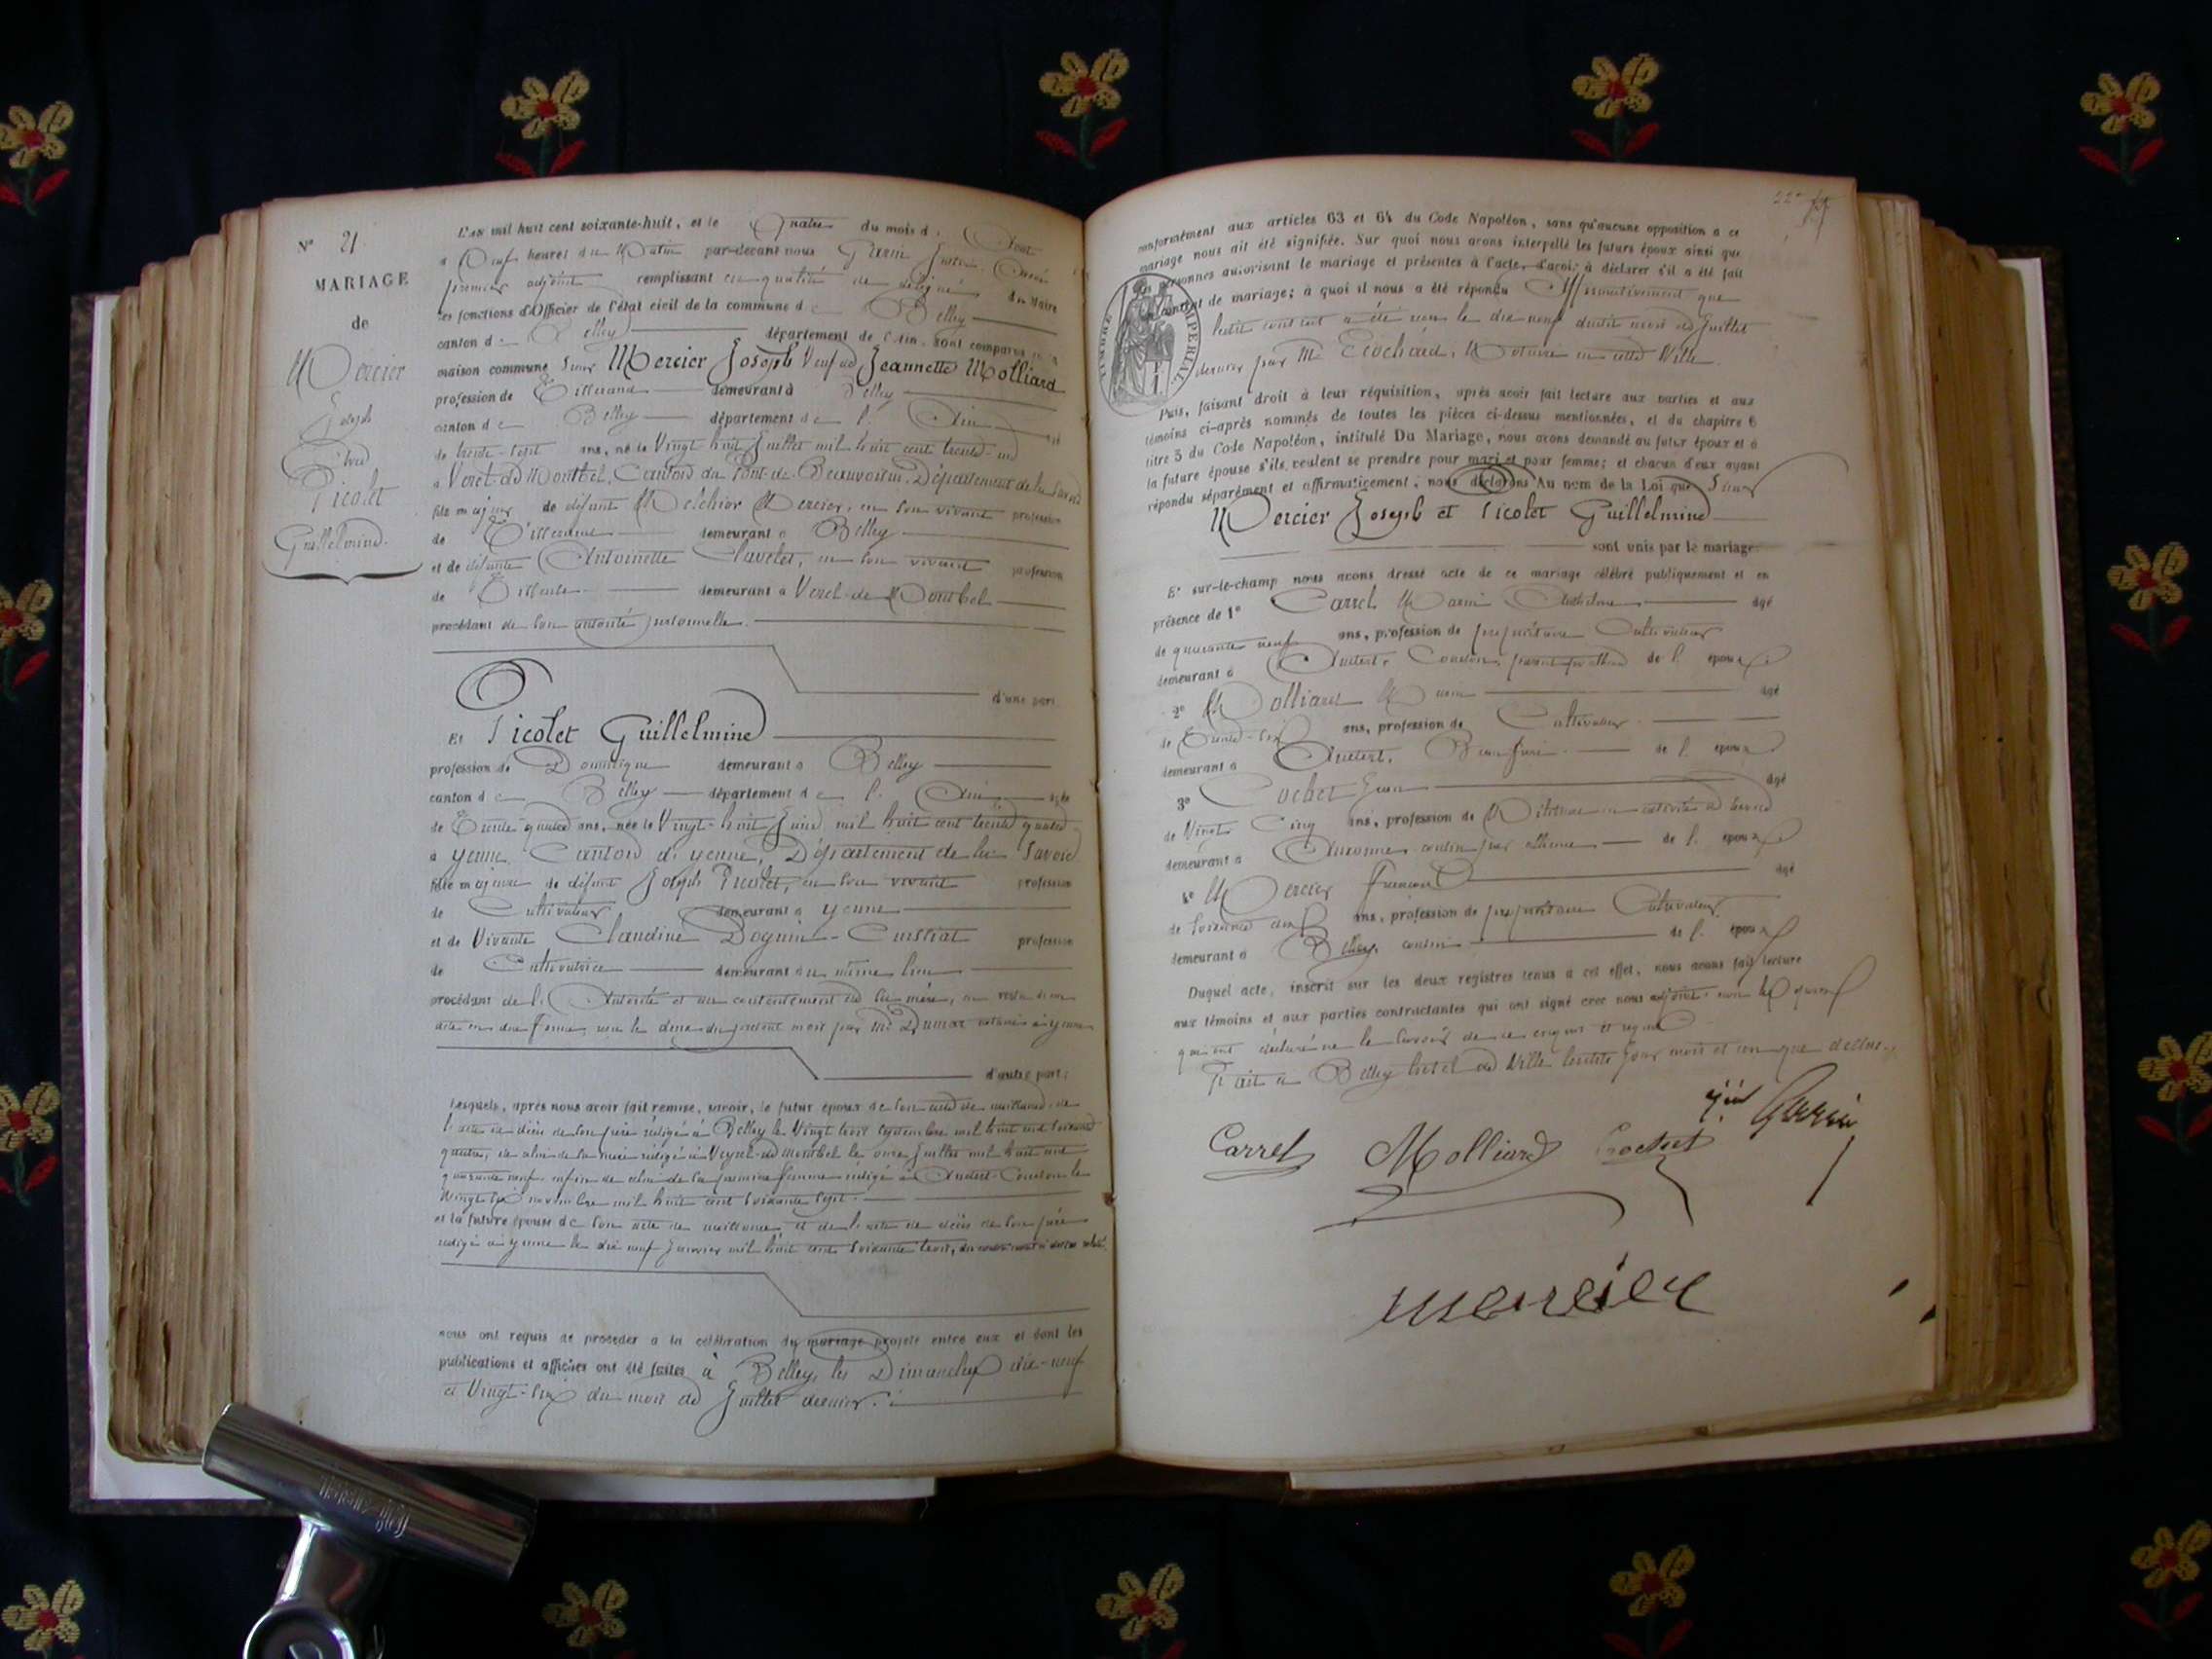 N° 21
MARIAGE
de
Mercier
Joseph
Et
Picolet
Guillelmine
L'an mil huit cent soixante-huit, et le Quatre du mois d' Août
à Neuf heures du Matin par-devant nous Garin
premier adjoint remplissant en qualité de délégué du Maire
les fonctions d'Officier de l'état civil de la commune de Belley
canton de Belley département de l'Ain, sont comparus en la
maison commune Sieur Mercier Joseph Veuf de Jeannette Molliard
profession de Tisserand demeurant à Belley
canton de Belley département de l' Ain âgé
de trente-sept ans, né le Vingt huit Juillet mil huit cent trente-un
à Verel-de-Montbel, Canton du Pont-de-Beauvoisin, Département de la Savoie
fils majeur de défunt Melchior Mercier, en son vivant profession
de Tisserand demeurant à Belley
et de défunte Antoinette Clavelet, en son vivant profession
de demeurant à Verel-de-Montbel
procédant de son autorité personnelle.
d'une part.
Et Picolet Guillelmine
profession de Domestique demeurant à Belley
canton de Belley département de l' Ain âgée
de Trente quatre ans, née le Vingt-huit Juin mil huit cent trente quatre
à Yenne, Canton d'Yenne, Département de la Savoie
fille majeure de défunt Joseph Picolet, en son vivant profession
de Cultivateur demeurant à Yenne
et de Vivante Claudine Doguin-Cusliat profession
de Cultivatrice demeurant au même lieu
procédant de l'Autorité et du consentement de sa mère, en vertu d'un
acte en due forme, reçu le du mois par Me Dumas notaire à Yenne
d'autre part;
Lesquels, après nous avoir fait remise, savoir, le futur époux de son acte de naissance, de
l'acte de décès de son père rédigé à Belley le Vingt trois septembre mil huit cent soixante
quatre, de celui de sa mère rédigé à Verel-de-Montbel le onze Juillet mil huit cent
quarante neuf, enfin de celui de sa première femme rédigé à Andert-Condon le
Vingt six novembre mil huit cent soixante sept.
et la future épouse de son acte de naissance et de l'acte de décès de son père
rédigé à Yenne le dix neuf Janvier mil huit cent soixante trois, du consentement
nous ont requis de procéder à la célébration du mariage projeté entre eux et dont les
publications et affiches ont été faites à Belley, les Dimanches dix-neuf
et Vingt-six du mois de Juillet dernier.
conformément aux articles 63 et 64 du Code Napoléon, sans qu'aucune opposition à ce
mariage nous ait été signifiée. Sur quoi nous avons interpellé les futurs époux ainsi que
les personnes autorisant le mariage et présentes à l'acte, d'avoir à déclarer s'il a été fait
contrat de mariage; à quoi il nous a été répondu Affirmativement que
ledit contrat a été reçu le dix neuf dudit mois de Juillet
dernier par Me Ecochard, Notaire en cette Ville.
TIMBRE IMPERIAL
Puis, faisant droit à leur réquisition, après avoir fait lecture aux parties et aux
témoins ci-après nommés de toutes les pièces ci-dessus mentionnées, et du chapitre 6
titre 5 du Code Napoléon, intitulé Du Mariage, nous avons demandé au futur époux et à
la future épouse s'ils veulent se prendre pour mari et pour femme; et chacun d'eux ayant
répondu séparément et affirmativement; nous déclarons Au nom de la Loi que Sieur
Mercier Joseph et Picolet Guillelmine
sont unis par le mariage.
Et sur-le-champ nous avons dressé acte de ce mariage célébré publiquement et en
présence de 1° Carrel Marin Anthelme âgé
de quarante neuf ans, profession de propriétaire Cultivateur
demeurant à Andert-Condon, de l' époux
2° Molliard Marin âgé
de Trente-six ans, profession de Cultivateur
demeurant à Andert, Beau frère de l' époux
3° Cochet Jean âgé
de Vingt Cinq ans, profession de Militaire en activité de service
demeurant à Auxonne cousin par alliance de l' époux
4° Mercier François âgé
de Soixante ans, profession de propriétaire Cultivateur
demeurant à Belley, cousin de l' époux
Duquel acte, inscrit sur les deux registres tenus à cet effet, nous avons fait lecture
aux témoins et aux parties contractantes qui ont signé avec nous adjoint, non les
qui ont déclaré ne le savoir de ce enquis et requis
Fait à Belley hôtel de Ville lesdits Jour mois et an que dessus.
Garin
Carrel Molliard Cochet
mercier